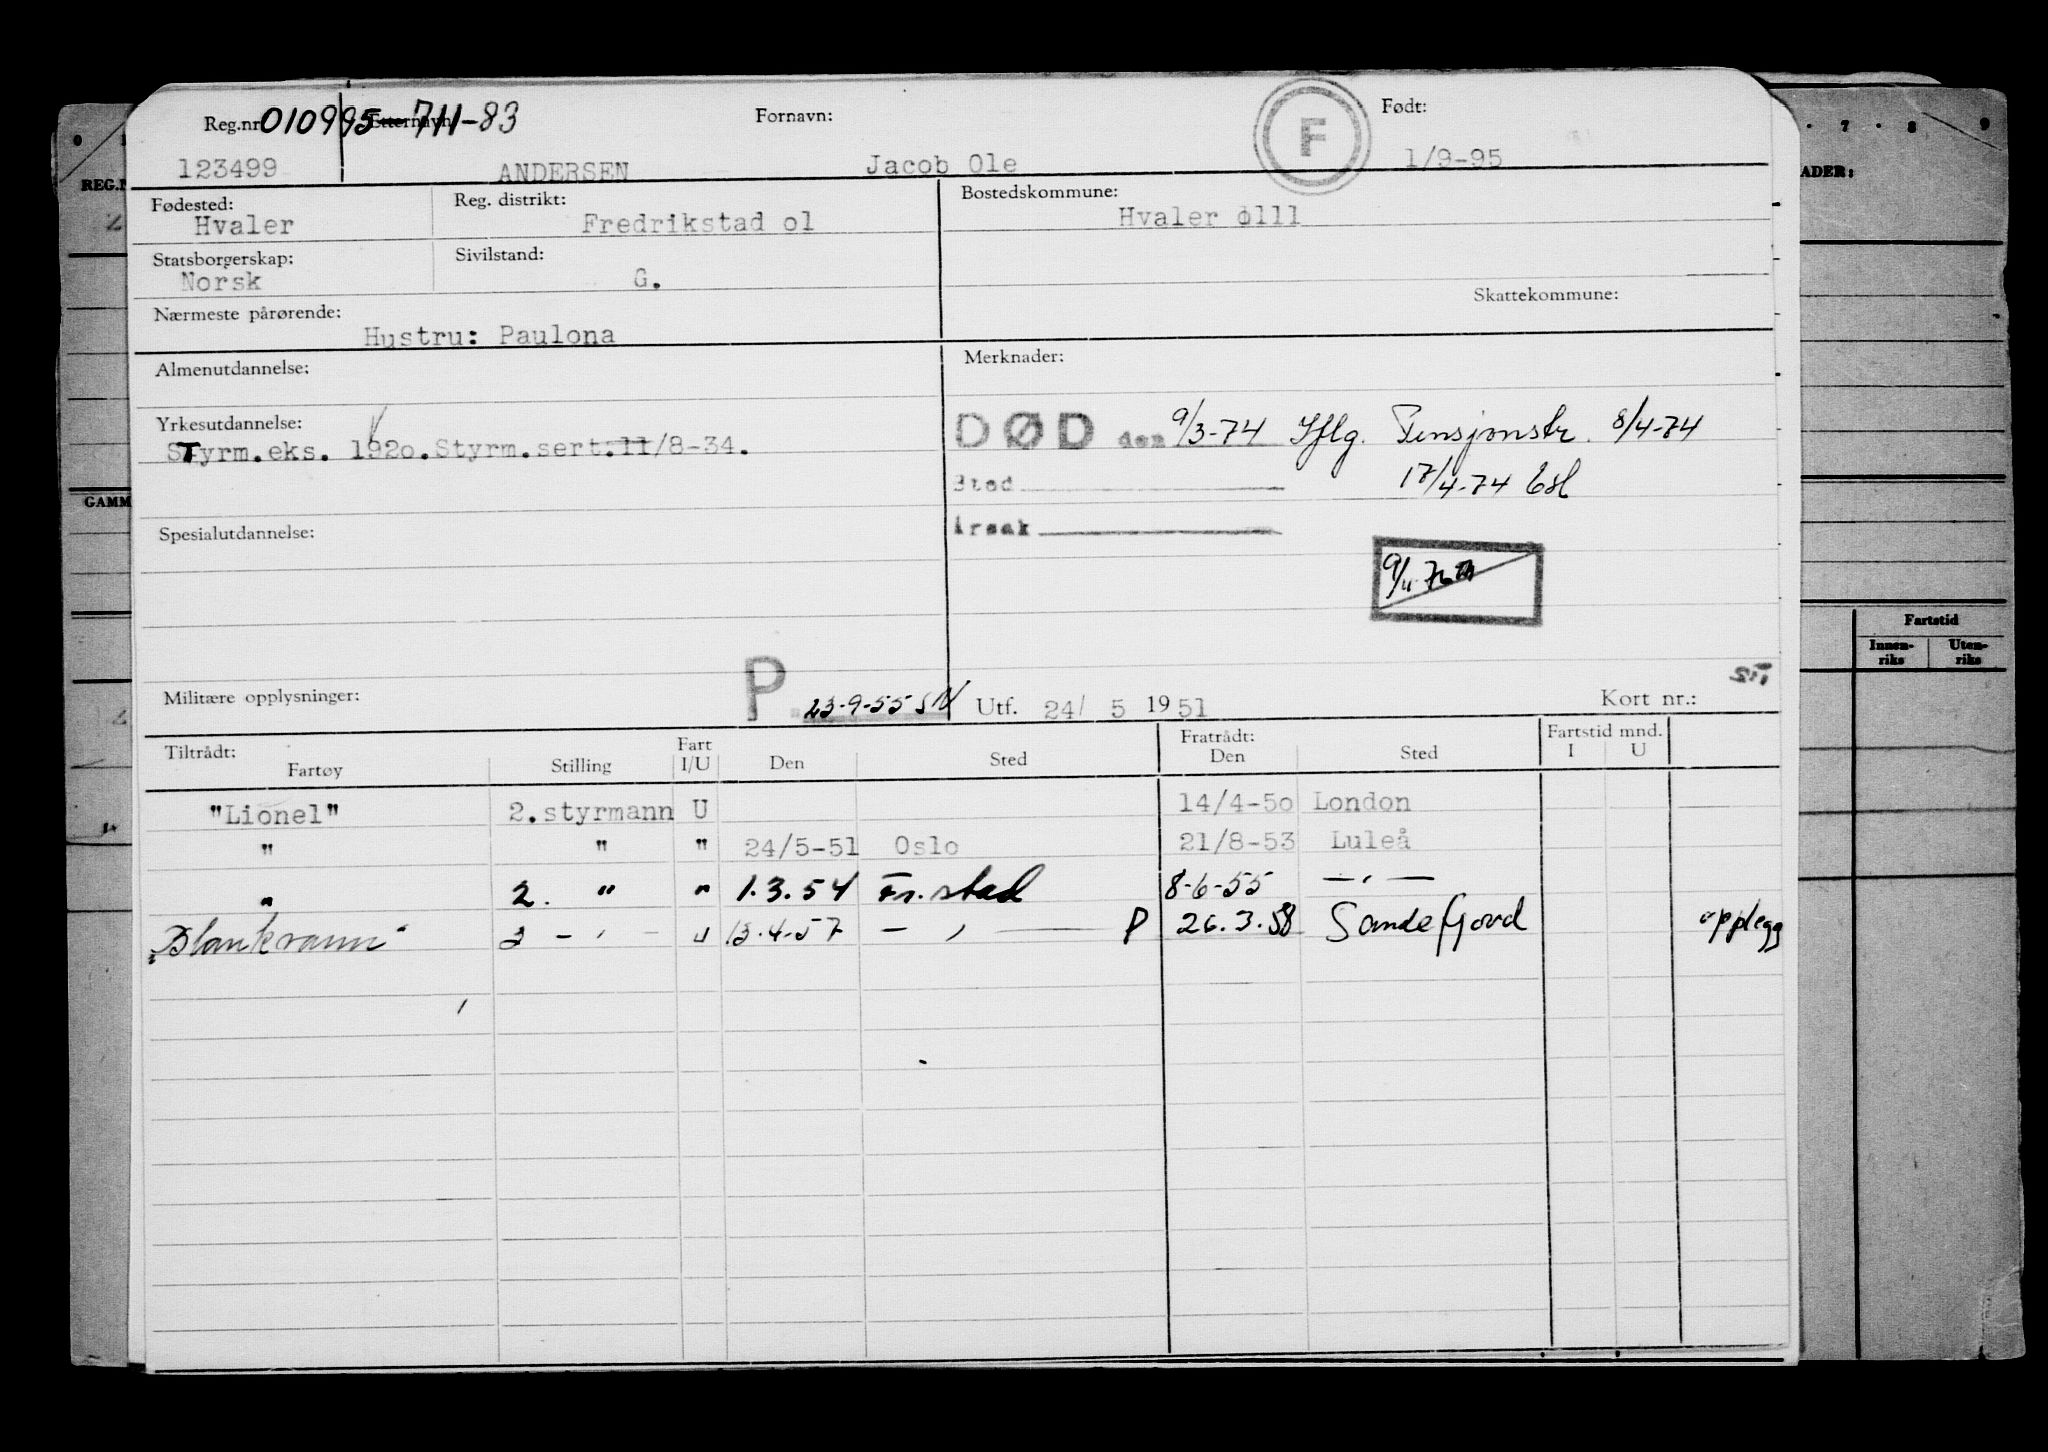 Reg.nr 010995 Etternavn: 711-83 Fornavn: F Født:
123499 ANDERSEN Jacob Ole 1/9-95
Fødested: Hvaler Reg. distrikt: Fredrikstad o1 Bostedskommune: Hvaler o111
Statsborgerskap: Norsk Sivilstand: G.
Skattekommune:
Nærmeste pårørende: Hustru: Paulona
Almenutdannelse: Merknader:
Yrkesutdannelse:
STyrm.eks. 192o.Styrm.sert.11/8-34.
DØD den 9/3-74 Iflg. Pensjonstr. 8/4-74
Sted 17/4-74
Årsak
Spesialutdannelse:
Militære opplysninger: P 23-9-55 Utf. 24/ 5 1951 Kort nr.:
Tiltrådt: Fratrådt: Fartstid mnd.
Fartøy Stilling Fart I/U Den Sted Den Sted I U
"Lionel" 2.styrmann U 14/4-5o London
" " " 24/5-51 Oslo 21/8-53 Luleå
" 2. " " 1.3.54 Fr.stad 8-6-55 — , —
"Blankvann" 2 - ' - U 13.4-57 — , — P 26.3.58 Sandefjord opplegg
REG.N
GAMM
7 8 9
ADER:
Fartstid
Innen-riks Uten-riks